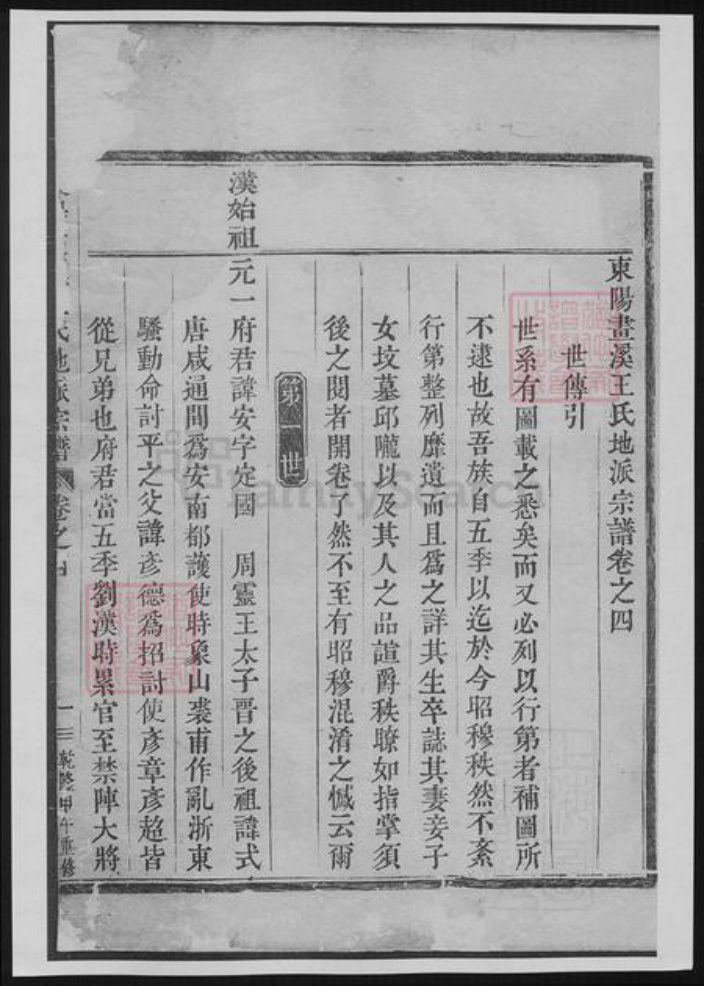 東陽畫溪王氏地派宗譜卷之四
世傳引
世系有圖載之悉矣而又必列以行第者補圖所
不逮也故吾族自五季以迄於今昭穆秩然不紊
行第整列靡遺而且爲之詳其生卒誌其妻妾子
女坟墓邱隴以及其人之品誼爵秩瞭如指掌須
後之閱者開卷了然不至有昭穆混淆之憾云爾
第一世
漢始祖
元一府君諱安字定國 周靈王太子晋之後祖諱式
唐咸通間爲安南都護使時象山裘甫作亂浙東
騷動命討平之父諱彥德爲招討使彥章彥超皆
從兄弟也府君當五季劉漢時累官至禁陣大將
氏地派宗譜 卷之四
一 乾隆甲午重修
FamilySearch